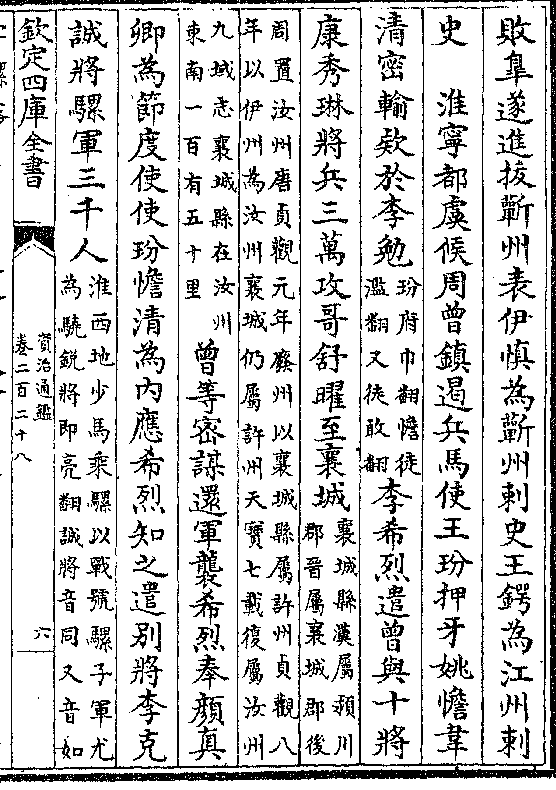 敗臯遂進拔蘄州表伊慎為蘄州刺史王鍔為江州刺
史　淮寧都虞候周曾鎮遏兵馬使王玢押牙姚憺韋
清密輸欵於李勉玢府巾翻憺徒濫翻又徒敢翻李希烈遣曾與十將
康秀琳將兵三萬攻哥舒曜至襄城襄城縣漢屬潁川郡晉屬襄城郡後
周置汝州唐貞觀元年廢州以襄城縣屬許州貞觀八
年以伊州為汝州襄城仍屬許州天寶七載復屬汝州
九域志襄城縣在汝州東南一百有五十里曾等密謀還軍襲希烈奉顔真
卿為節度使使玢憺清為内應希烈知之遣别將李克
誠將騾軍三千人淮西地少馬乘騾以戰號騾子軍尤為驍鋭將即亮翻誠將音同又音如
欽定四庫全書
資治通鑑
卷二百二十八
六